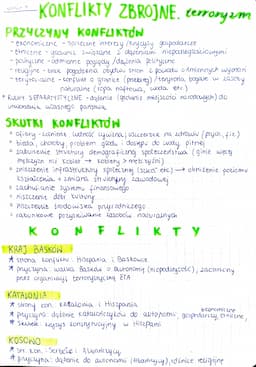 KONFLIKTY ZBROJNE. terroryzm
PRZYCZYNY KONFLIKTÓW
- ekonomiczne - sprzeczne interesy / kryzysy gospodarcze
- etniczne - głównie związane z dążeniem niepodległościowymi
- polityczne - odmienne poglądy / dążenia polityczne
- religijne - brak pogodzenia obydwu stron z powodu odmiennych wyznań
- terytorialne - konflikt o granice (przebieg) / terytoria, bogate w zasoby
naturalne (ropa naftowa, woda etc.)
* RUCHY SEPARATYSTYCZNE - dążenie (głównie mniejszości narodowych) do
utworzenia własnego państwa
SKUTKI KONFLIKTÓW
* ofiary - zarówno ludność cywilna, uszczerbek na zdrowiu (psych., fiz.)
* bieda, choroby, problem głodu i dostępu do wody pitnej
* zaburzenie struktury demograficznej społeczeństwa (ginie więcej
mężczyzn niż kobiet → kobiety > mężczyźni)
* zniszczenie infrastruktury społecznej (szkoł etc.) → obniżenie poziomu
kształcenia + zmiana struktury zawodowej
* zachwianie systemu finansowego
* niszczenie dóbr kultury
* niszczenie środowiska przyrodniczego
* rabunkowe pozyskiwanie zasobów naturalnych
KONFLIKTY
KRAJ BASKÓW
* strona konfliktu: Hiszpania i Baskowie
* przyczyna: walka Basków o autonomię (niepodległość), zaczniony
przez organizację terrorystyczną ETA
KATALONIA
* strony kon. katalonia i Hiszpania
* przyczyna: dążenie Katalończyków do autonomii, gospodarczej, etniczne,
ekonomiczne
* skutek: kryzys konstytucyjny w Hiszpanii
KOSOWO
* str. kon. - Serbowie i Albańczycy
* przyczyna: dążenie do autonomii (Albańczycy), różnice religijne